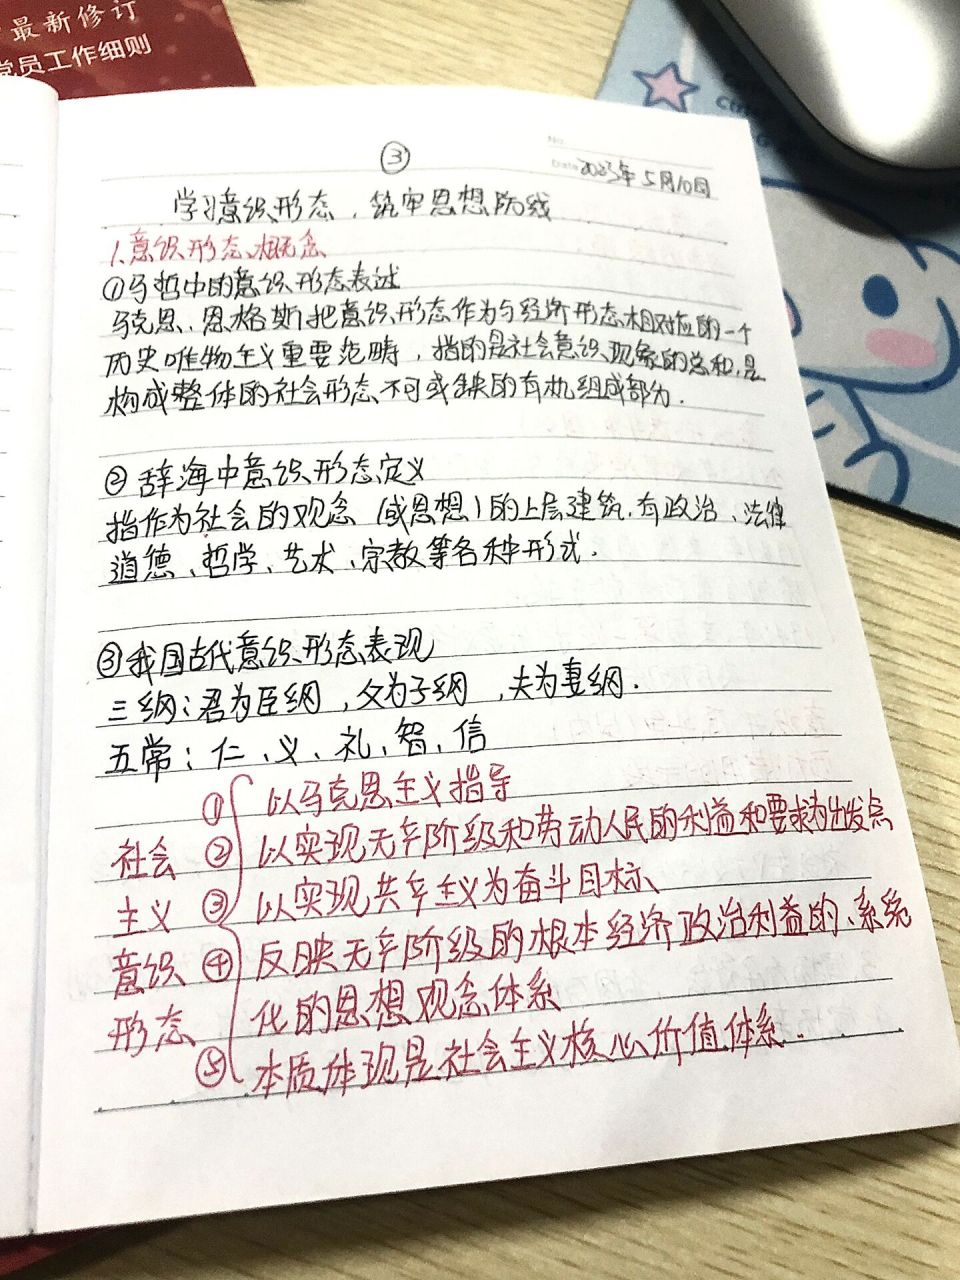 最新修订
党员工作细则
③
No.
Date 2023年5月10日
学习意识形态，筑牢思想防线
1.意识形态概念
①马哲中的意识形态表述
马克思、恩格斯把意识形态作为与经济形态相对应的一个
历史唯物主义重要范畴，指的是社会意识现象的总和，是
构成整体的社会形态不可或缺的有机组成部分.
②辞海中意识形态定义
指作为社会的观念（或思想）的上层建筑.有政治、法律
道德、哲学、艺术、宗教等各种形式.
③我国古代意识形态表现
三纲：君为臣纲，父为子纲，夫为妻纲.
五常：仁、义、礼、智、信
社会主义意识形态
①以马克思主义指导
②以实现无产阶级和劳动人民的利益和要求为出发点
③以实现共产主义为奋斗目标、
④反映无产阶级的根本经济政治利益的、系统
化的思想观念体系
⑤本质体现是社会主义核心价值体系.